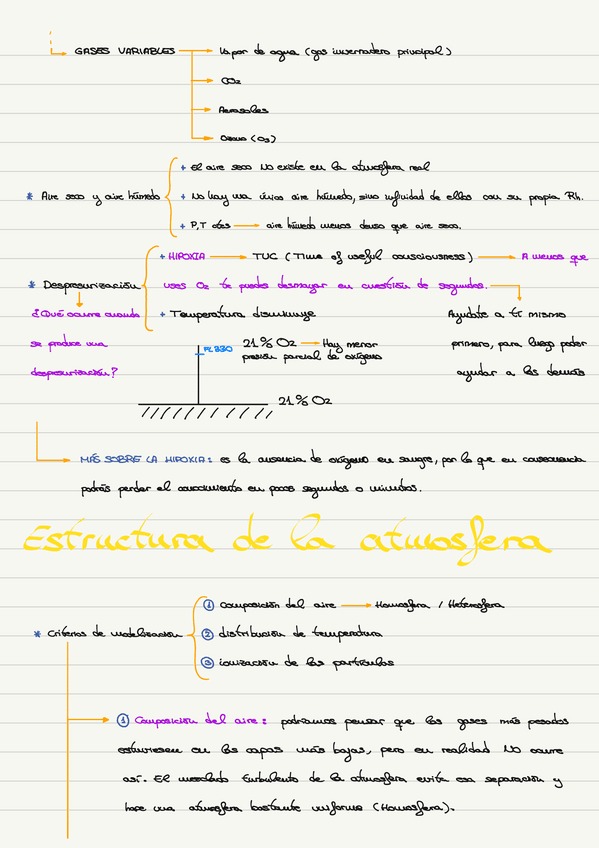 GASES VARIABLES → Vapor de agua (gas invernadero principal)
→ CO2
→ Aerosoles
→ Ozono (O3)
+ El aire seco NO existe en la atmósfera real
* Aire seco y aire húmedo + No hay un único aire húmedo, sino infinidad de ellos con su propia Rh.
+ P,T ctes → aire húmedo menos denso que aire seco.
+ HIPOXIA → TUC (Time of useful consciousness) → A menos que
* Despresurización uses O2 te puedes desmayar en cuestión de segundos.
¿Qué ocurre cuando + Temperatura disminuye Ayúdate a tí mismo
se produce una FL330 21% O2 → Hay menor primero, para luego poder
presión parcial de oxígeno
despresurización? ayudar a los demás
21% O2
MÁS SOBRE LA HIPOXIA: es la ausencia de oxígeno en sangre, por lo que en consecuencia
podrás perder el conocimiento en pocos segundos o minutos.
Estructura de la atmosfera
1 Composición del aire → Homosfera / Heterosfera
* Criterios de modelización 2 distribución de temperatura
3 ionización de las partículas
1 Composición del aire: podríamos pensar que los gases más pesados
estuviesen en las capas más bajas, pero en realidad NO ocurre
así. El mezclado turbulento de la atmósfera evita esa separación y
hace una atmósfera bastante uniforme (Homosfera).